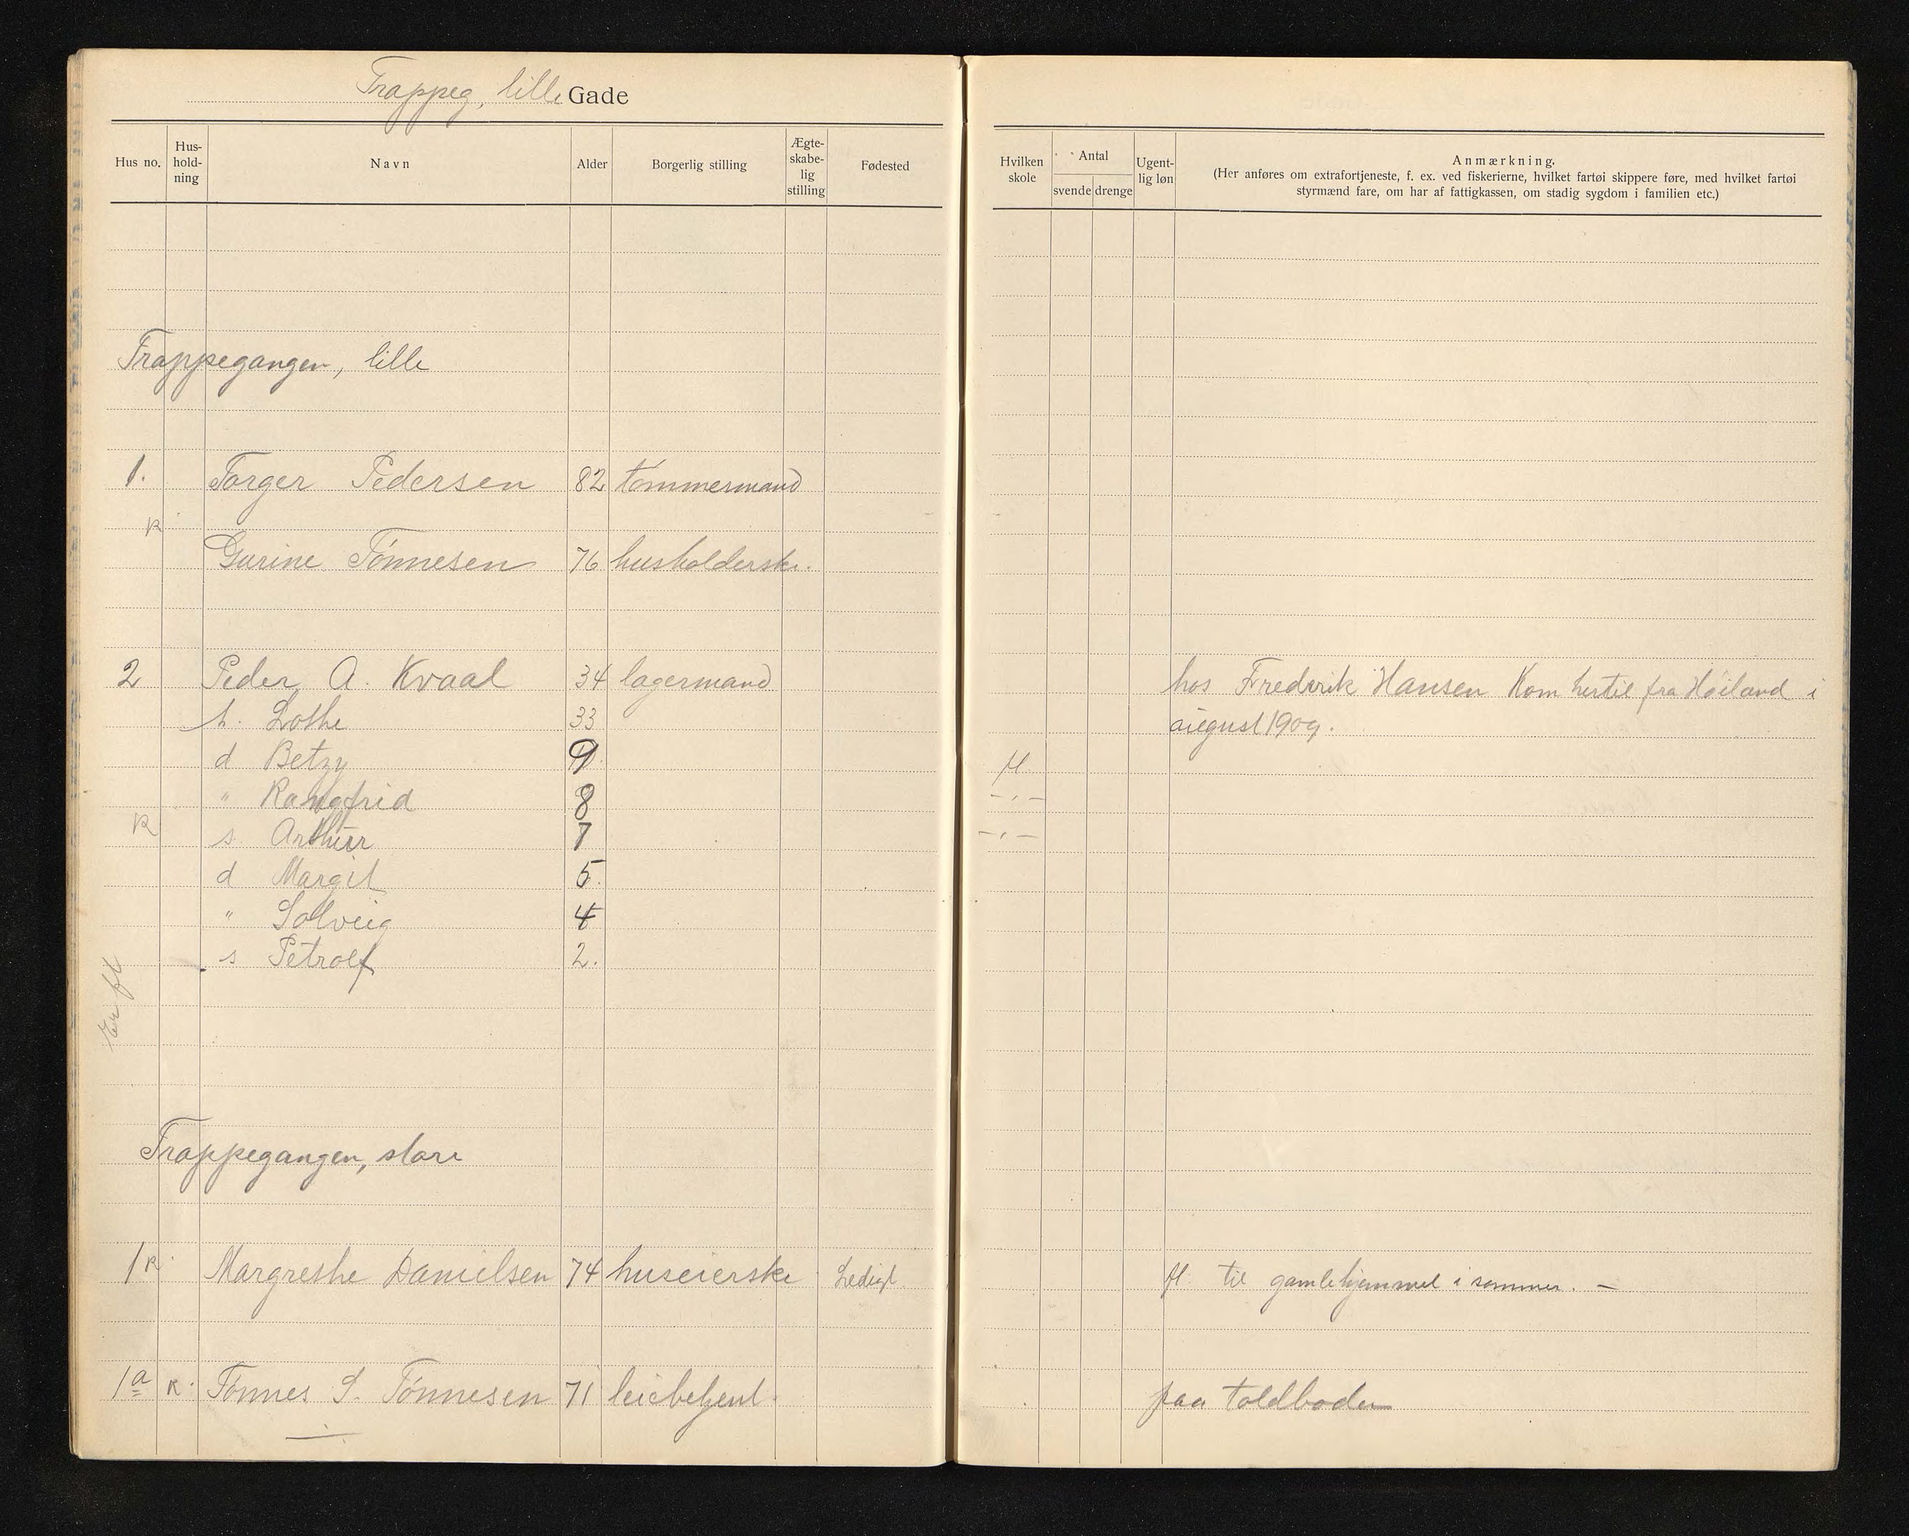 Trappeg, lille Gade
Hus no. Hus-hold-ning Navn Alder Borgerlig stilling Ægte-skabe-lig stilling Fødested
Hvilken skole Antal svende drenge Ugent-lig løn Anmærkning.
(Her anføres om extrafortjeneste, f. ex. ved fiskerierne, hvilket fartøi skippere føre, med hvilket fartøi
styrmænd fare, om har af fattigkassen, om stadig sygdom i familien etc.)
Trappegangen, lille
1. Torger Pedersen 82 tømmermand
R
Gurine Tønnesen 76 husholderske.
2 Peder A. Kvaal 34 lagermand hos Fredrik Hansen Kom hertil fra Høiland i
h. Lothe 33 august 1909.
d Betzy 9 fl.
" Rangfrid 8 -"-
R s. Arthur 7 -"-
d Margit 5.
" Solveig 4
s Petrolf 2.
Er fl
Trappegangen, store
1 R. Margrethe Danielsen 74 huseierske Ledigt fl. til gamlehjemmet i sommer. —
1a R. Tønnes S. Tønnesen 71 leiebetjent. paa toldboden